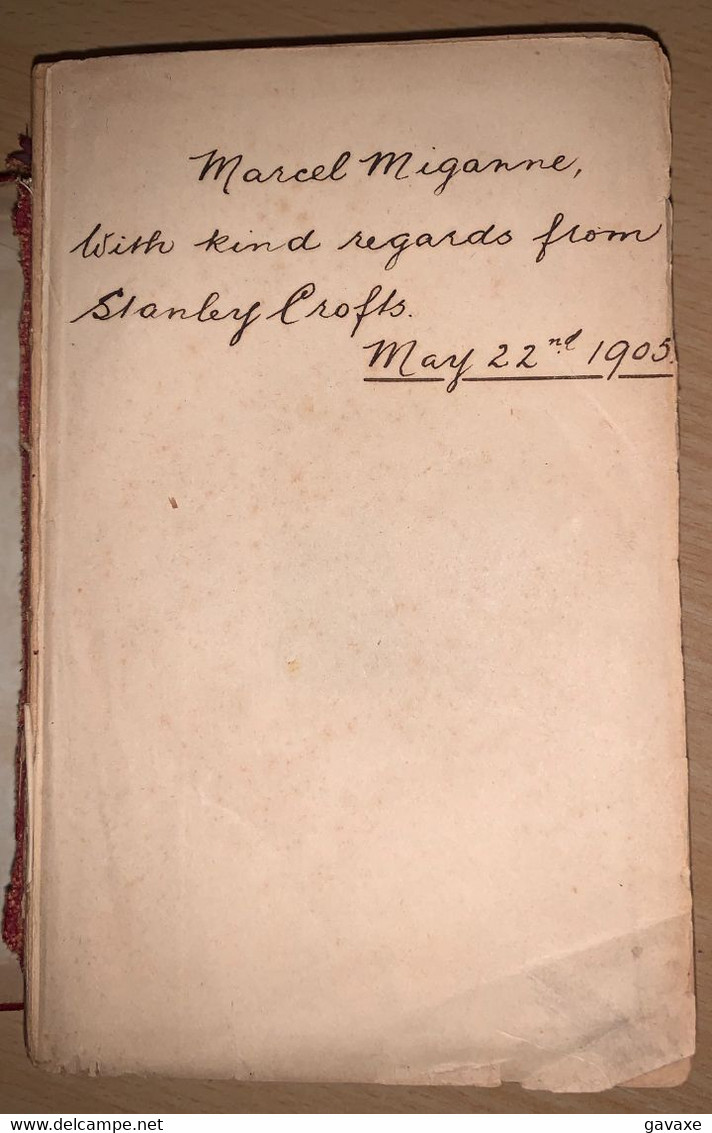 Marcel Miganne,
With kind regards from
Stanley Crofts.
May 22nd 1905.
delcampe.net
gavaxe